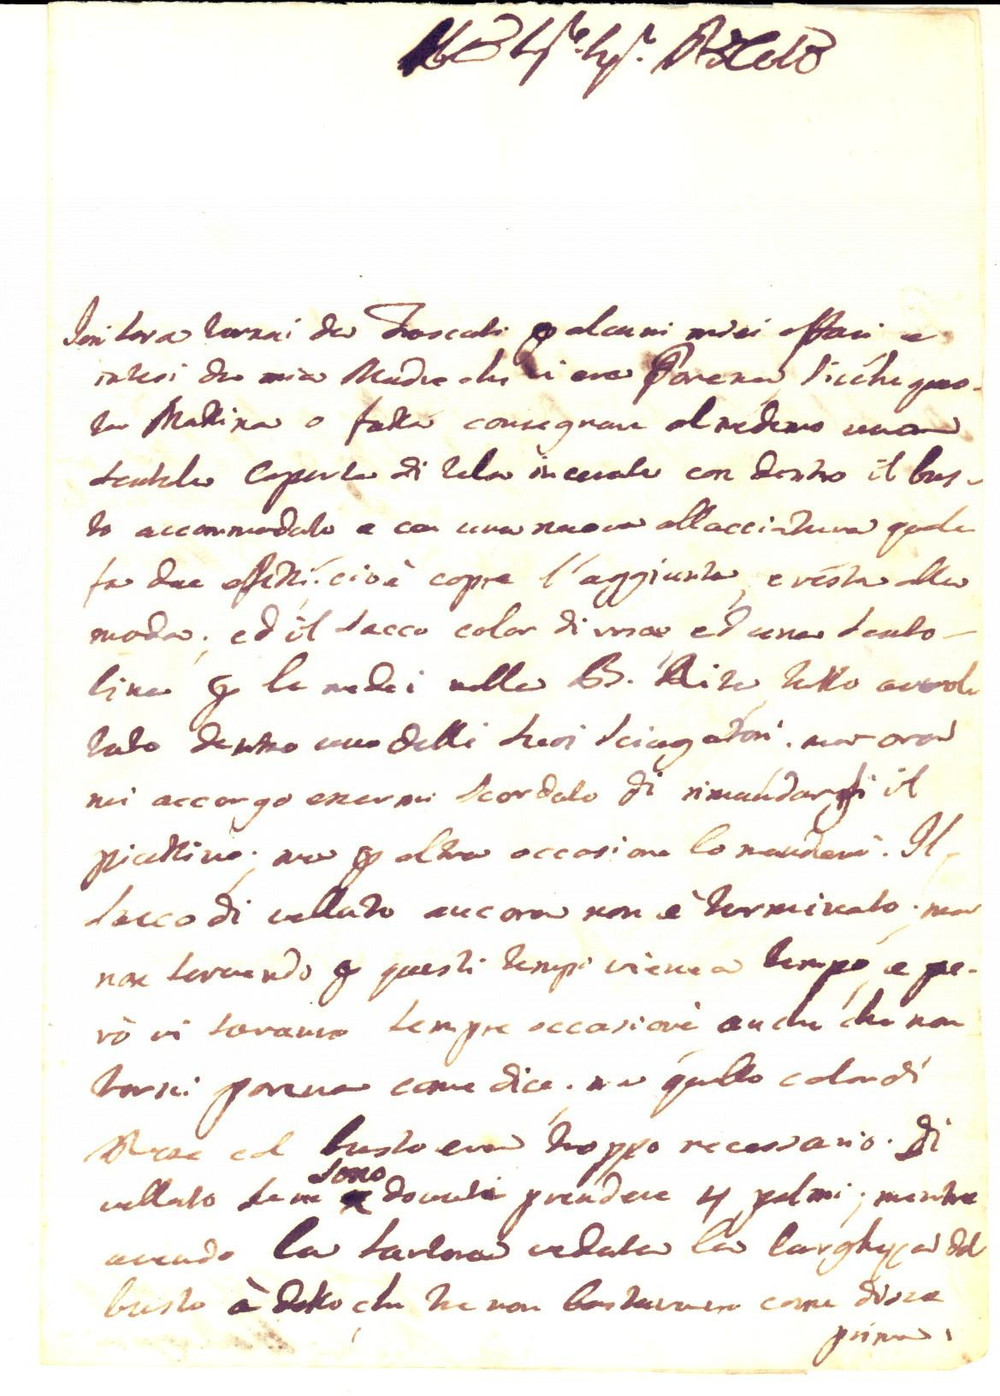 Sig.re Sig.r
Ieri sera tornai da Frascati p alcuni miei affari e
intesi da mia Madre che vi era Pavena, sicche ques-
ta Mattina o fatto consegnare al medemo una
scatola coperta di tela incerata con dentro il bus-
to accommodato e con una nuova allacciatura quale
fa due effetti: cioè copre l'aggiunta, e resta alla
moda; ed il sacco color di rosa ed una scato-
lina p le nella B. Rita, tutto avvol
tato dentro uno delli suoi sciugatori. ma ora
mi accorgo essermi scordato di rimandargli il
piattino; ma p altra occasione lo manderò. Il
sacco di velluto ancora non è terminato; ma
non servendo p questi tempi viene a tempo, e pe-
rò vi saranno sempre occasioni anche che non
torni pavena come dice. ma quello color di
Rosa ed busto era troppo necessario. Di
velluto se ne sono dovuti prendere 4 palmi; mentre
avendo la sartora veduta la larghezza del
busto à detto che tre non bastavano come disse
prima.